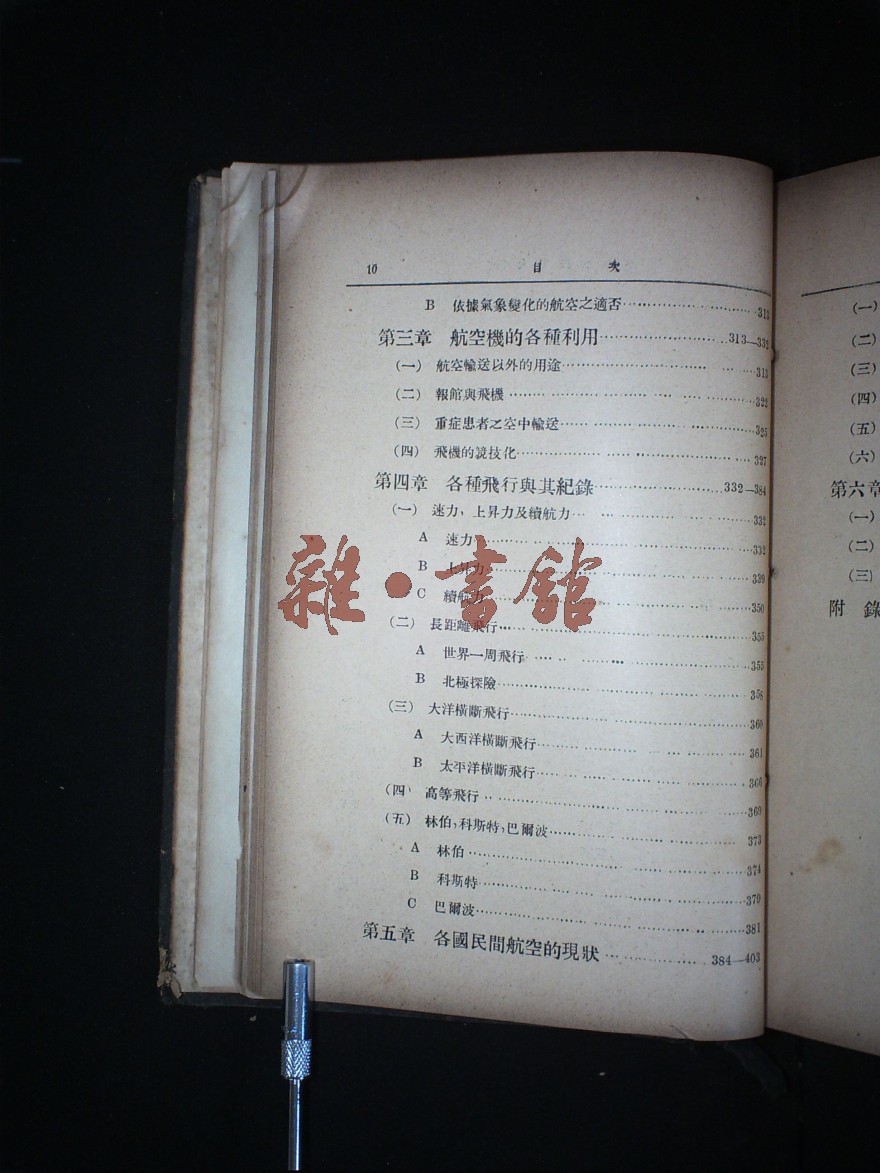 10 目 次
B 依據氣象變化的航空之適否 313
第三章 航空機的各種利用 313—332
(一) 航空輸送以外的用途 313
(二) 報館與飛機 322
(三) 重症患者之空中輸送 325
(四) 飛機的競技化 327
第四章 各種飛行與其紀錄 332—384
(一) 速力，上昇力及續航力 332
A 速力 332
B 上昇力 339
C 續航力 350
(二) 長距離飛行 355
A 世界一周飛行 355
B 北極探險 358
(三) 大洋橫斷飛行 360
A 大西洋橫斷飛行 361
B 太平洋橫斷飛行 366
(四) 高等飛行 369
(五) 林伯，科斯特，巴爾波 373
A 林伯 374
B 科斯特 379
C 巴爾波 381
第五章 各國民間航空的現狀 384—403
雜·書館
(一)
(二)
(三)
(四)
(五)
(六)
第六章
(一)
(二)
(三)
附 錄